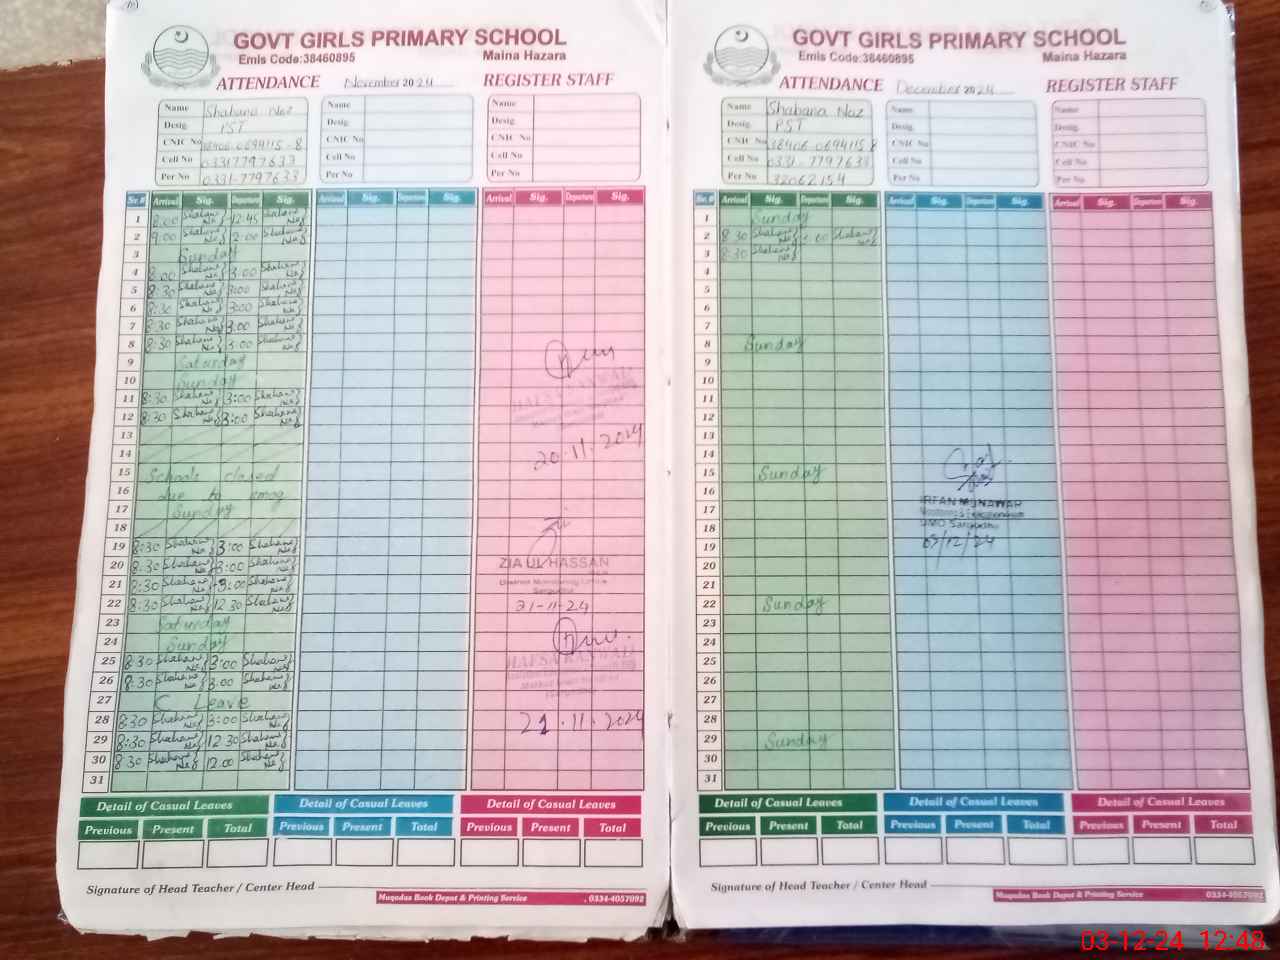 GOVT GIRLS PRIMARY SCHOOL
Emis Code:38460895 Maina Hazara
ATTENDANCE November 2024 REGISTER STAFF
Name Shabana Naz Name Name
Desig. PST Desig. Desig.
CNIC No 38406-0694115-8 CNIC No CNIC No
Cell No 03317797633 Cell No Cell No
Per No 0331-7797633 Per No Per No
Sr. # Arrival Sig. Departure Sig. Arrival Sig. Departure Sig. Arrival Sig. Departure Sig.
1 8:00 Shabana Naz 12:45 Shabana Naz
2 9:00 Shabana Naz 2:00 Shabana Naz
3 Sunday
4 8:00 Shabana Naz 3:00 Shabana Naz
5 8:30 Shabana Naz 3:00 Shabana Naz
6 8:30 Shabana Naz 3:00 Shabana Naz
7 8:30 Shabana Naz 3:00 Shabana Naz
8 8:30 Shabana Naz 3:00 Shabana Naz
9 Saturday
10 Sunday
11 8:30 Shabana Naz 3:00 Shabana Naz
12 8:30 Shabana Naz 3:00 Shabana Naz
13
14 20.11.2024
15 Schools closed
16 due to smog
17 Sunday
18
19 8:30 Shabana Naz 3:00 Shabana Naz
20 8:30 Shabana Naz 3:00 Shabana Naz ZIA UL HASSAN
21 8:30 Shabana Naz 3:00 Shabana Naz District Monitoring Officer
Sargodha
22 8:30 Shabana Naz 12:30 Shabana Naz 21-11-24
23 Saturday
24 Sunday
25 8:30 Shabana Naz 3:00 Shabana Naz
26 8:30 Shabana Naz 3:00 Shabana Naz
27 C Leave
28 8:30 Shabana Naz 3:00 Shabana Naz 21.11.2024
29 8:30 Shabana Naz 12:30 Shabana Naz
30 8:30 Shabana Naz 12:00 Shabana Naz
31
Detail of Casual Leaves Detail of Casual Leaves Detail of Casual Leaves
Previous Present Total Previous Present Total Previous Present Total
Signature of Head Teacher / Center Head
Muqadas Book Depot & Printing Service . 0334-4057092
GOVT GIRLS PRIMARY SCHOOL
Emis Code:38460895 Maina Hazara
ATTENDANCE December 2024 REGISTER STAFF
Name Shabana Naz Name Name
Desig. PST Desig. Desig.
CNIC No 38406-0694115 8 CNIC No CNIC No
Cell No 0331-7797633 Cell No Cell No
Per No 32062154 Per No Per No
Sr. # Arrival Sig. Departure Sig. Arrival Sig. Departure Sig. Arrival Sig. Departure Sig.
1 Sunday
2 8:30 Shabana Naz :00 Shabana Naz
3 8:30 Shabana Naz
4
5
6
7
8 Sunday
9
10
11
12
13
14
15 Sunday
16
17 IRFAN MUNAWAR
18 DMO Sargodha
19 03/12/24
20
21
22 Sunday
23
24
25
26
27
28
29 Sunday
30
31
Detail of Casual Leaves Detail of Casual Leaves Detail of Casual Leaves
Previous Present Total Previous Present Total Previous Present Total
Signature of Head Teacher / Center Head
Muqadas Book Depot & Printing Service 0334-4057092
03-12-24 12:48